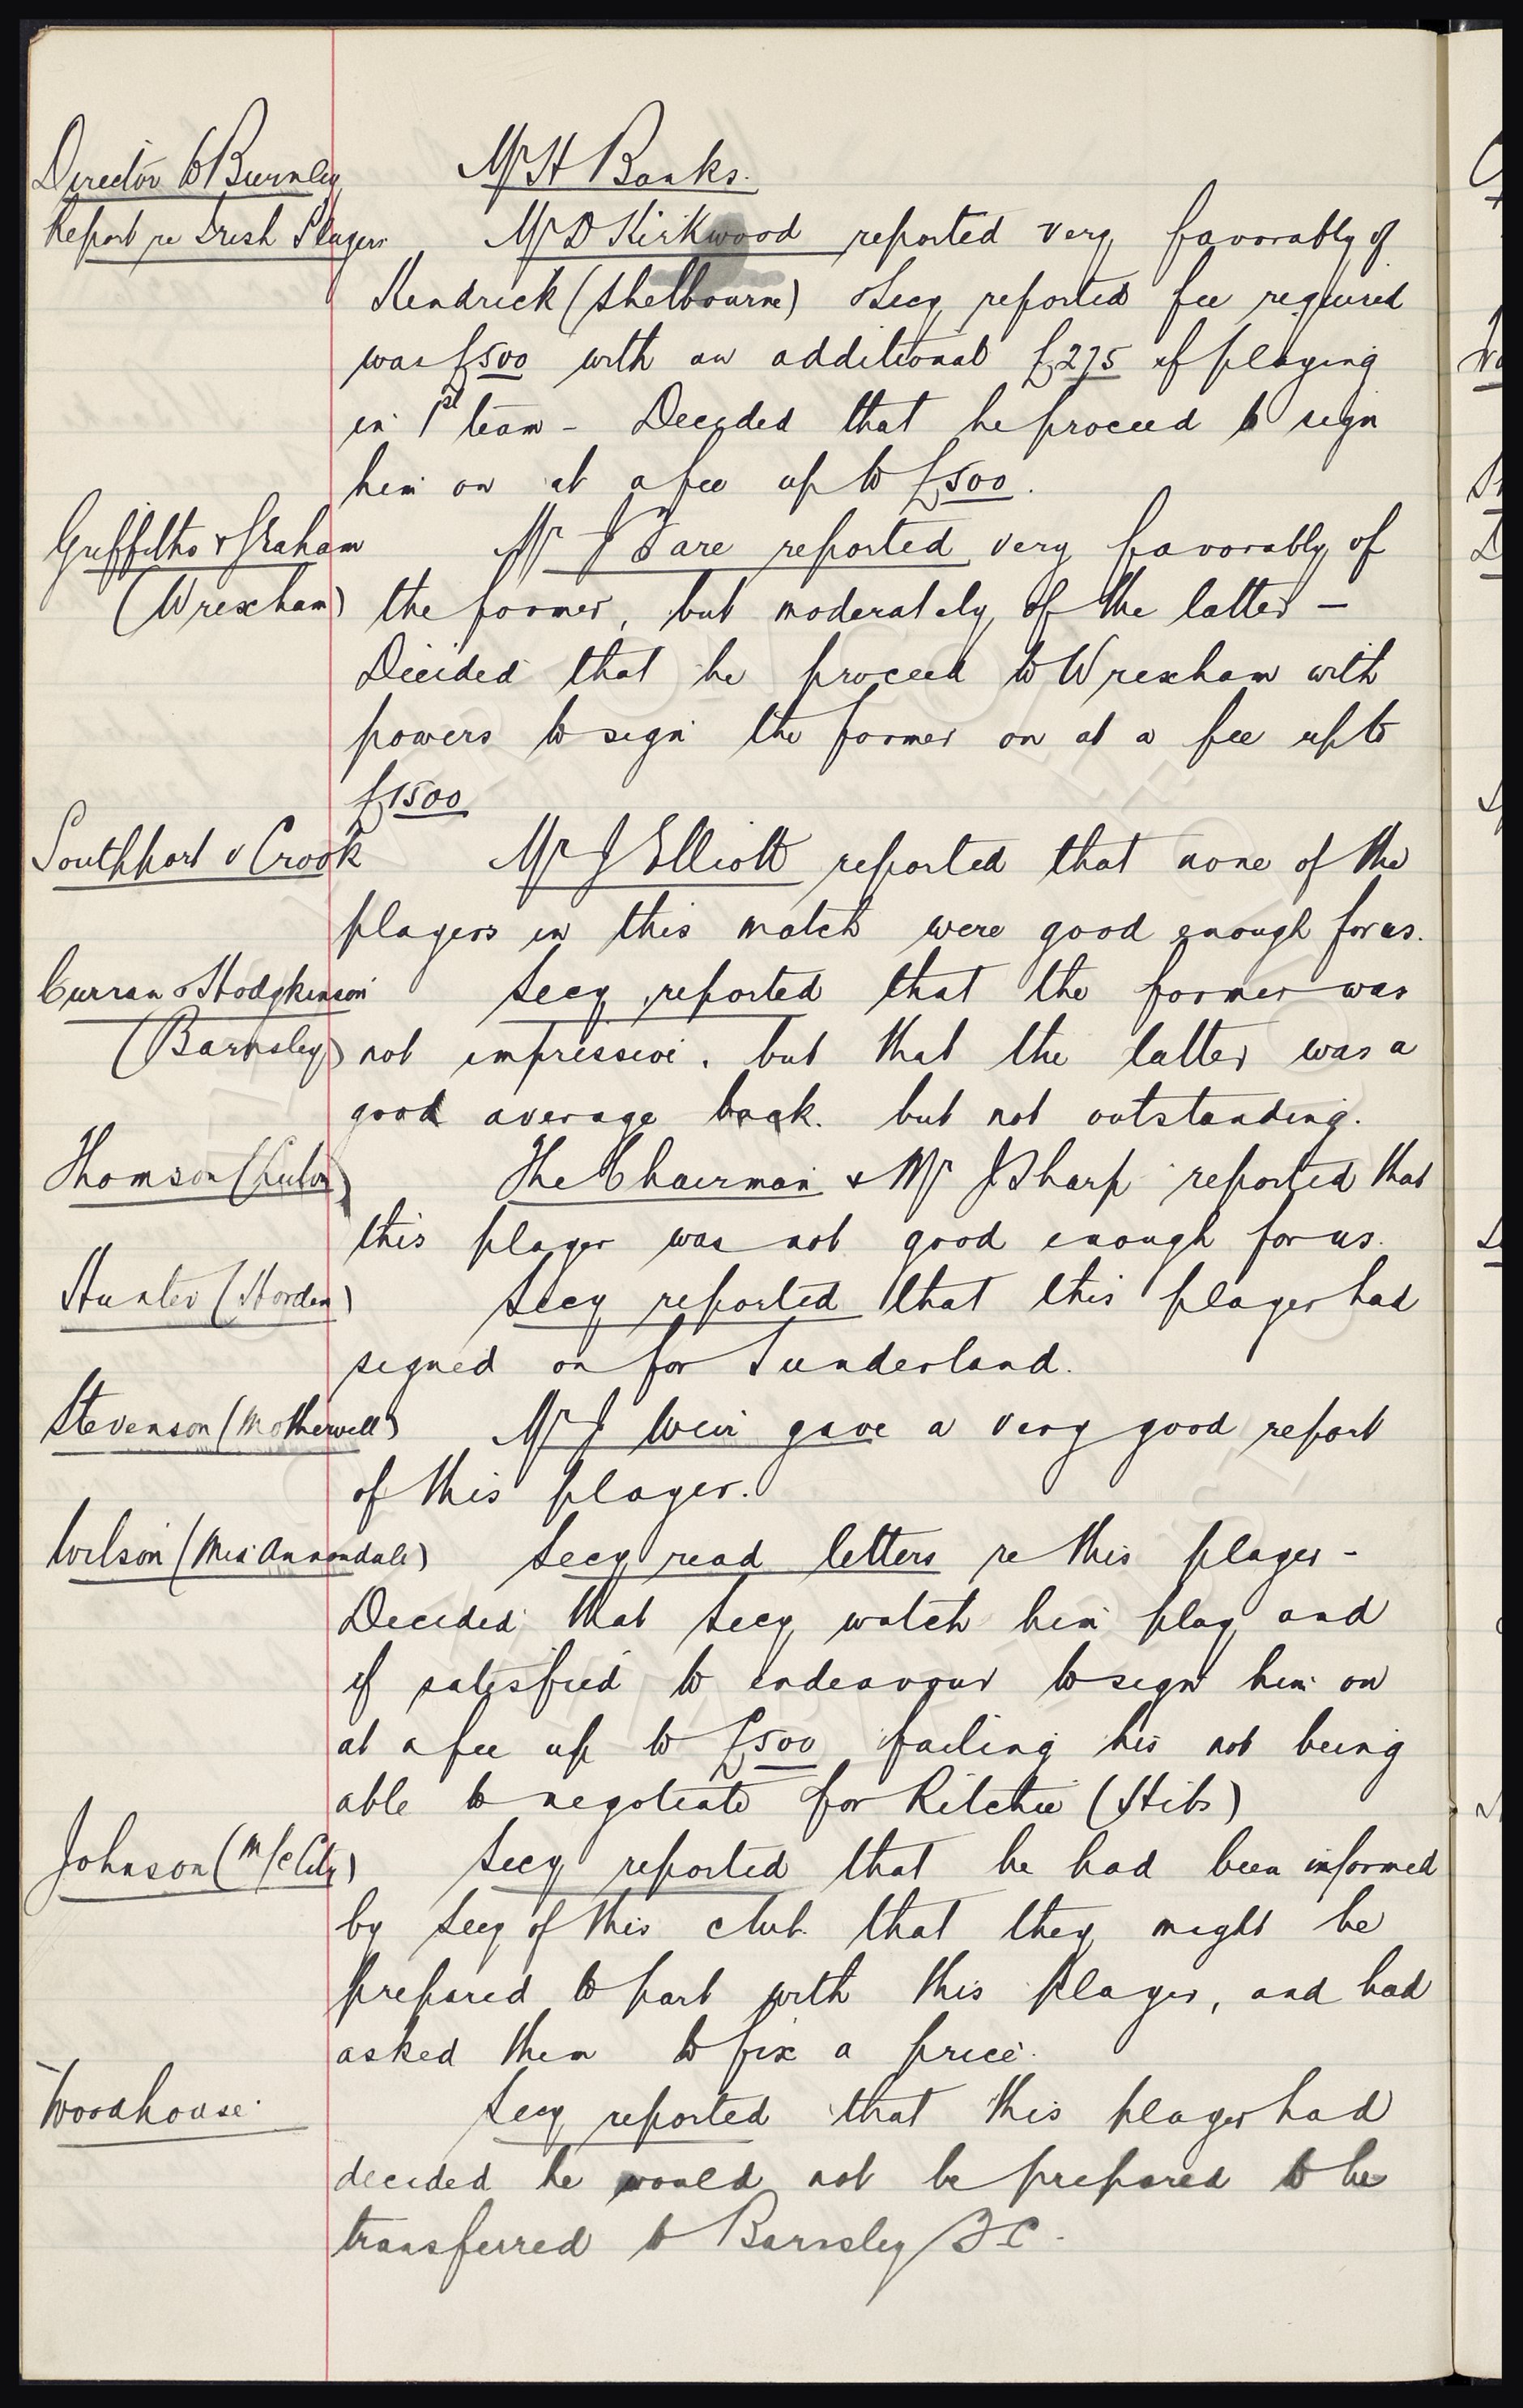 Director to Burnley Mr H Banks.
Report re Irish Players Mr D Kirkwood reported very favorably of
Kendrick (Shelbourne) & Secy reported fee required
was £500 with an additional £275 if playing
in 1st team - Decided that he proceed to sign
him on at a fee up to £500.
Griffiths & Graham Mr J Fare reported very favorably of
(Wrexham) the former, but moderately of the latter -
Decided that he proceed to Wrexham with
powers to sign the former on at a fee up to
£1500
Southport v Crook Mr J Elliott reported that none of the
players in this match were good enough for us.
Curran & Hodgkinson Secy reported that the former was
(Barnsley) not impressive, but that the latter was a
good average back. but not outstanding.
Thomson (Luton) The Chairman & Mr J Sharp reported that
this player was not good enough for us.
Hunter (Horden) Secy reported that this player had
signed on for Sunderland.
Stevenson (Motherwell) Mr J Weir gave a very good report
of this player.
Wilson (Mid Annandale) Secy read letters re this player -
Decided that Secy watch him play and
if satisfied to endeavour to sign him on
at a fee up to £500 failing his not being
able to negotiate for Ritchie (Hibs)
Johnson (M/c City) Secy reported that he had been informed
by Secy of this club that they might be
prepared to part with this player, and had
asked them to fix a price.
Woodhouse. Secy reported that this player had
decided he would not be prepared to be
transferred to Barnsley F C.